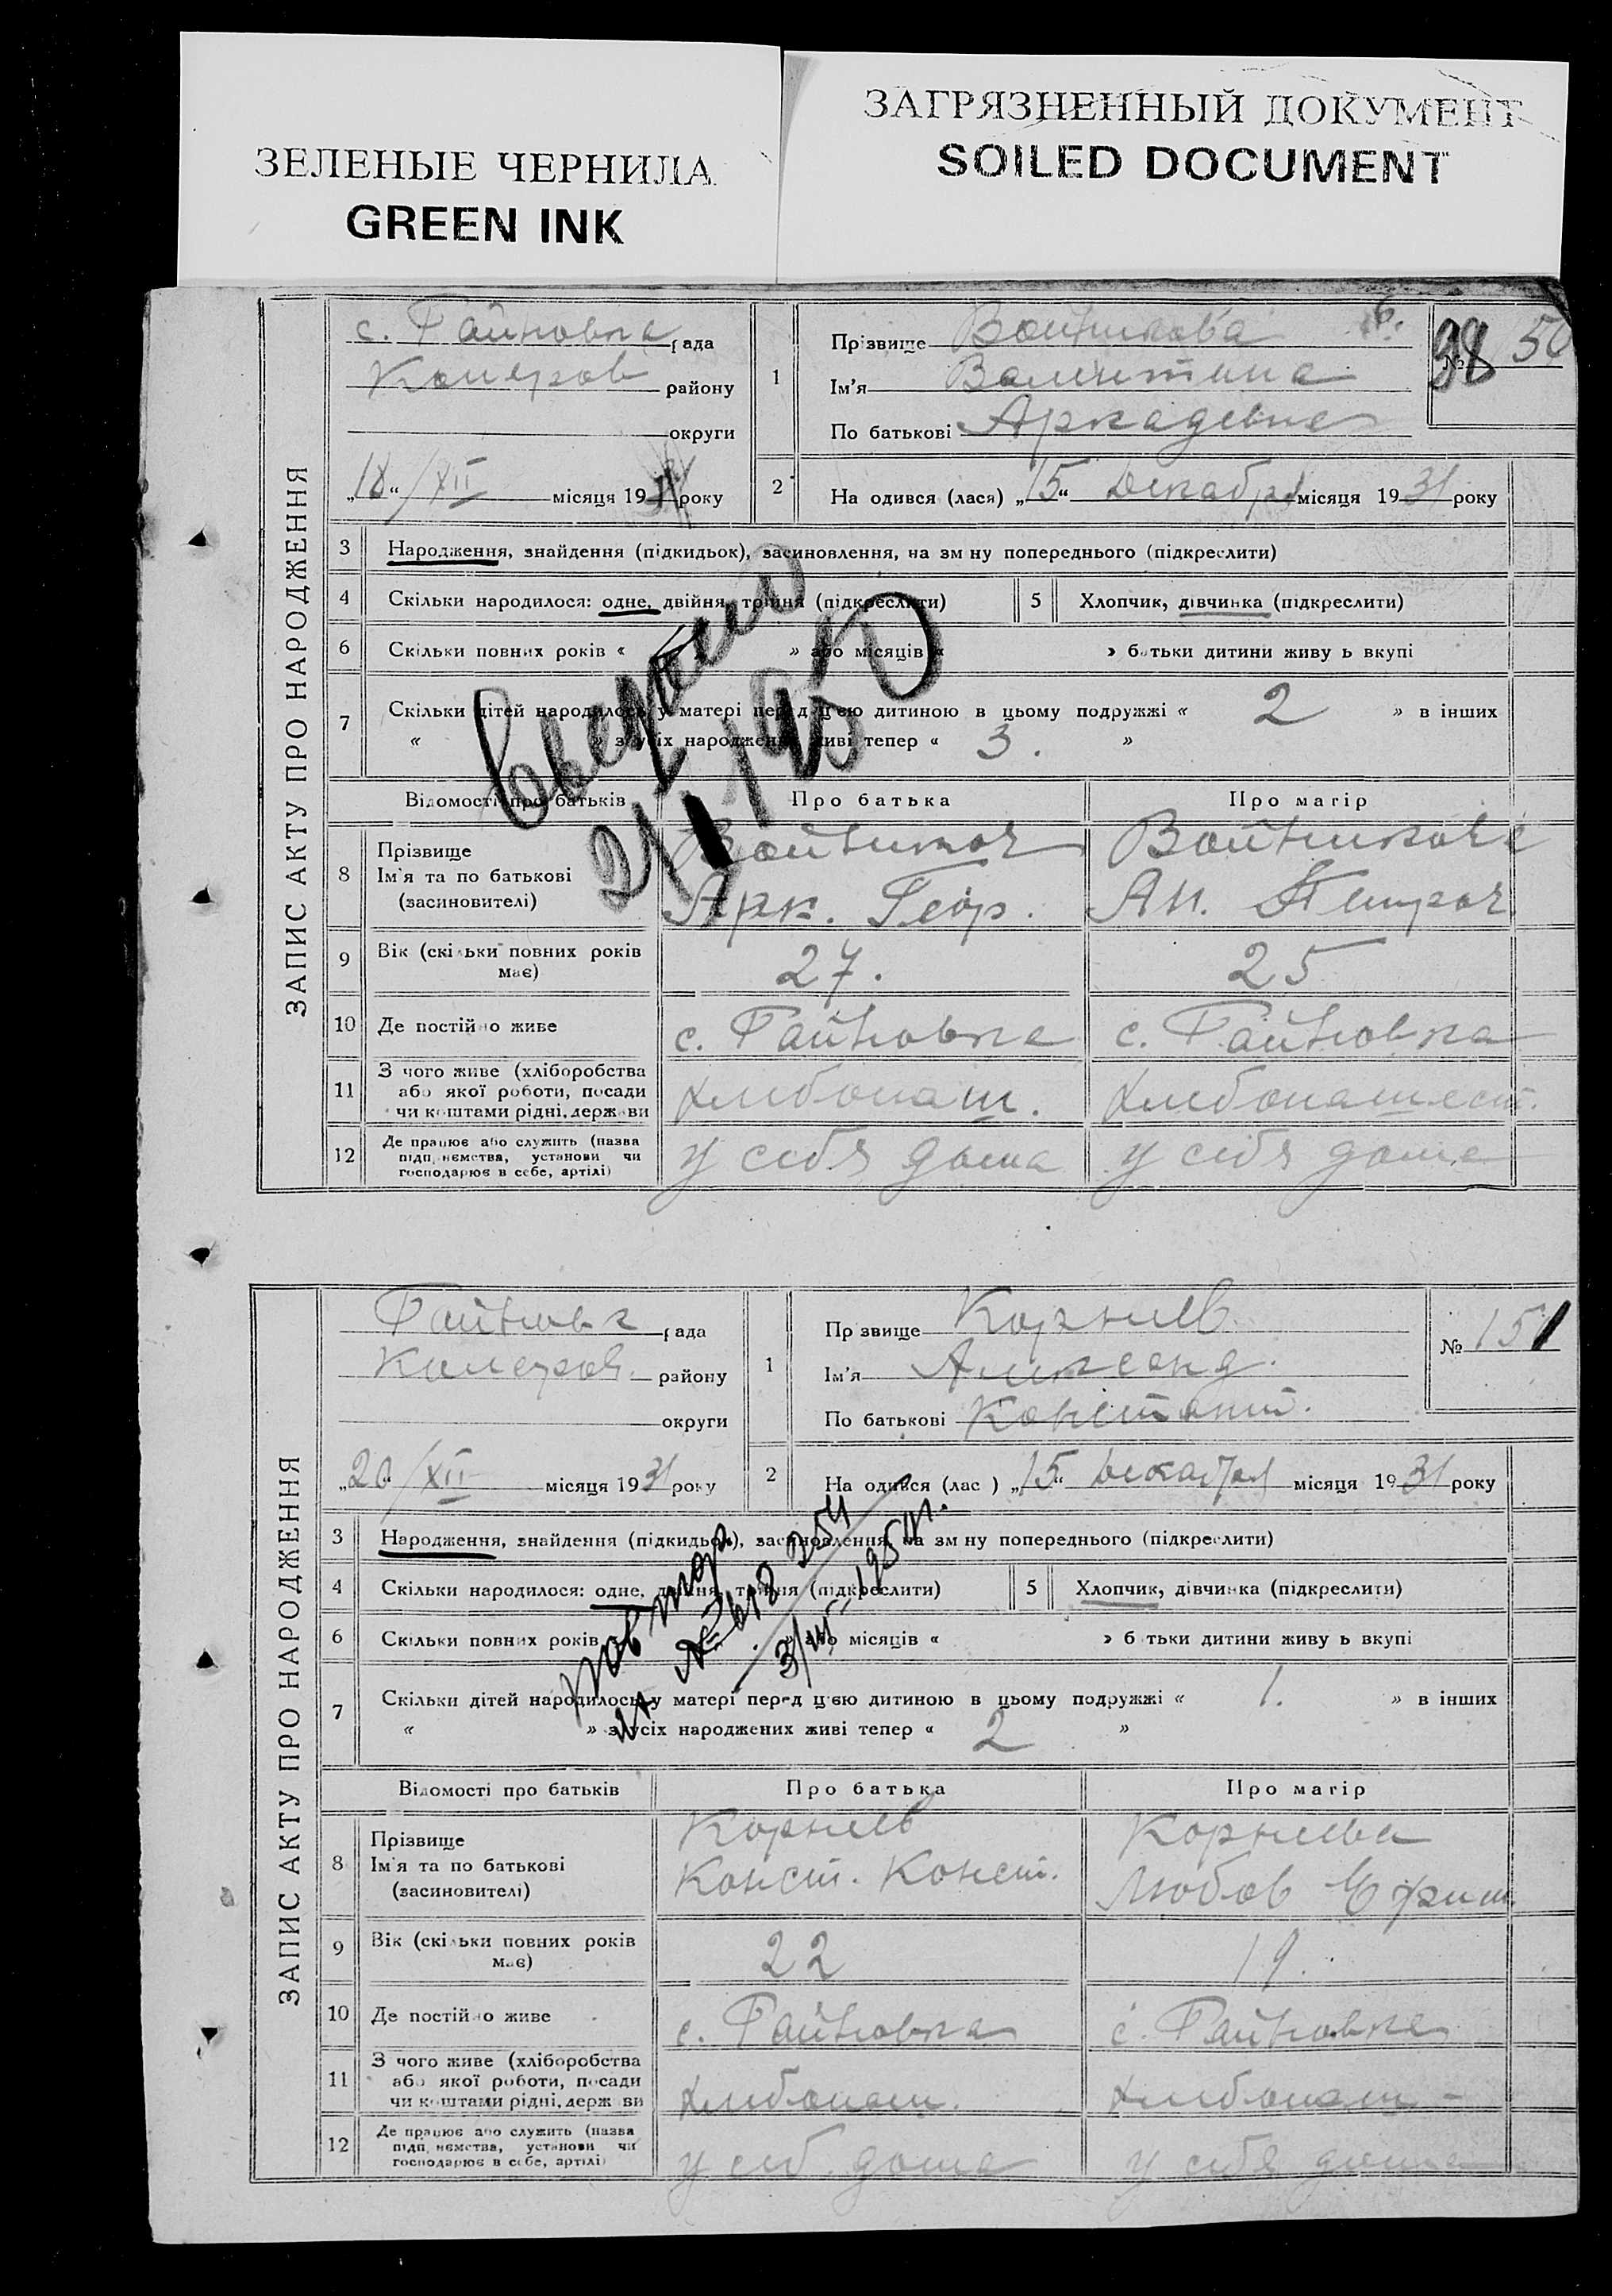 ЗЕЛЕНЫЕ ЧЕРНИЛА
GREEN INK
ЗАГРЯЗНЕННЫЙ ДОКУМЕНТ
SOILED DOCUMENT
ЗАПИС АКТУ ПРО НАРОДЖЕННЯ
с. Гайновка рада
району
округи
„18“/XII місяця 1931 року
1
Прізвище Войтикова
Ім'я Валентина
По батькові Аркадевна
№ 98 50
2 На одився (лася) „15“ Декабря місяця 1931 року
3 Народження, знайдення (підкидьок), засиновлення, на зм ну попереднього (підкреслити)
4 Скільки народилося: одне, двійня, трійня (підкреслити) 5 Хлопчик, дівчинка (підкреслити)
6 Скільки повних років « » або місяців « » б тьки дитини живу ь вкупі
7 Скільки дітей народилось у матері перед цією дитиною в цьому подружжі « 2 » в інших
« » з усіх народжених живі тепер « 3. »
Сверено
2/I 1950
Відомості про батьків Про батька Про матір
8 Прізвище
Ім'я та по батькові
(засиновителі)
Арк. Геор.
9 Вік (скільки повних років має) 27. 25
10 Де постійно живе с. Гайновка с. Гайновка
11 З чого живе (хліборобства
або якої роботи, посади
чи коштами рідні, держ ви
хлибопаш.
12 Де працює або служить (назва
підп иємства, установи чи
господарює в себе, артілі)
у себя дома у себя дома
ЗАПИС АКТУ ПРО НАРОДЖЕННЯ
Гайновк рада
району
округи
„20“/XII місяця 1931 року
1
Пр звище Корниев
Ім'я Александ.
По батькові Константи.
№ 151
2 На одився (лас ) „15“ Декабря місяця 1931 року
3 Народження, знайдення (підкидьок), засиновлення, на зм ну попереднього (підкреслити)
4 Скільки народилося: одне, двійня, трійня (підкреслити) 5 Хлопчик, дівчинка (підкреслити)
6 Скільки повних років « » або місяців « » б тьки дитини живу ь вкупі
7 Скільки дітей народилось у матері перед цією дитиною в цьому подружжі « 1. » в інших
« » з усіх народжених живі тепер « 2 »
повтор
Відомості про батьків Про батька Про матір
8 Прізвище
Ім'я та по батькові
(засиновителі)
Корниев Корниева
Конст. Конст. Любов
9 Вік (скільки повних років має) 22 19.
10 Де постійно живе с. Гайновка с. Гайновка
11 З чого живе (хліборобства
або якої роботи, посади
чи коштами рідні, держ ви
хлибопаш. хлибопаш -
12 Де працює або служить (назва
підп иємства, установи чи
господарює в себе, артілі)
у себ. дома у себя дома